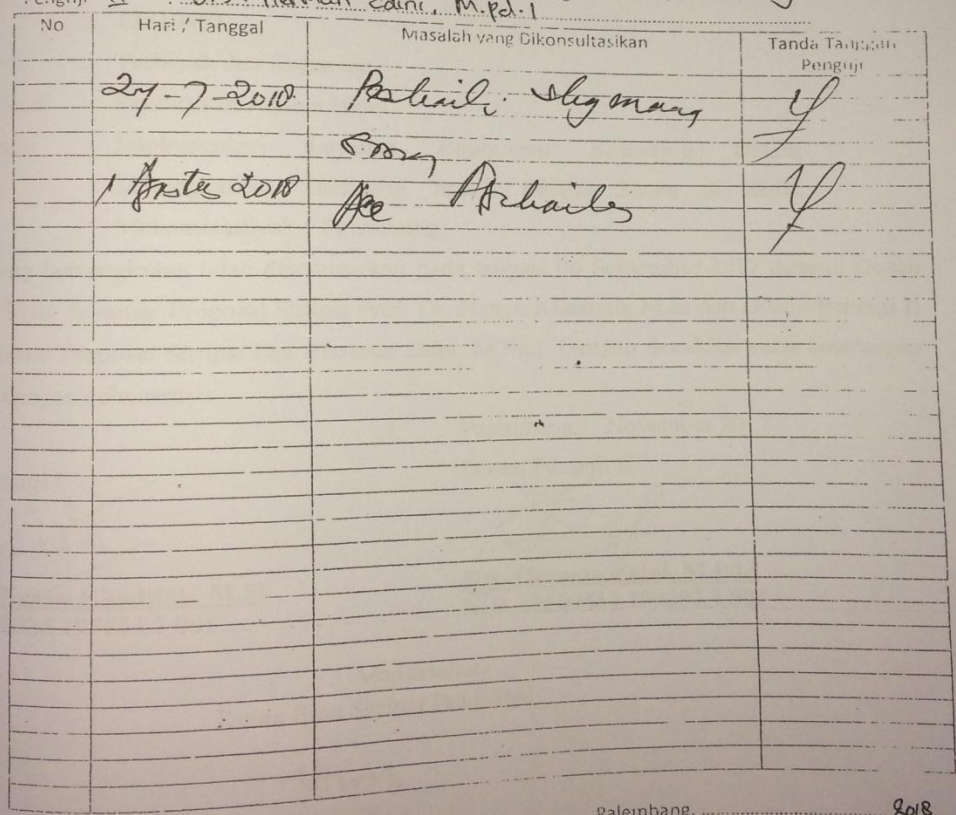 Penguji II : Drs. Herman Zaini, M.Pd.I
No Hari / Tanggal Masalah yang Dikonsultasikan Tanda Tangan Penguji
27-7-2018 Perbaiki
1 Agustus 2018 Acc Perbaikan
Palembang, 2018